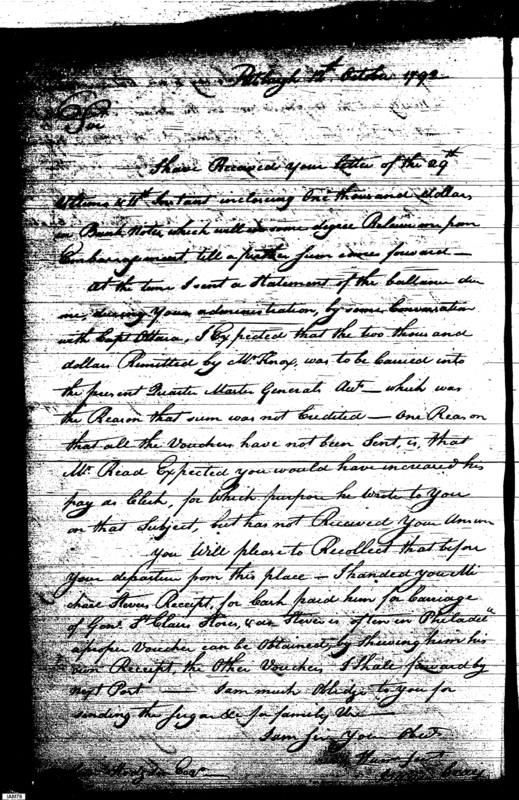 Pittsburgh 12th October 1792
Sir
I have Received your letter of the 29th
Ultimo & 4th Instant inclosing One thousand dollars
in Bank Notes, which will in some degree Relieve me from
Embarrassment, till a further sum comes forward —
At the time I sent a Statement of the ballance due
me, during your administration, by some Conversation
with Capt OHara, I Expected that the two thousand
dollars Remitted by Mr Knox, was to be Carried into
the present Quarter Master Generals Acct — which was
the Reason that sum was not Credited — One Reason
that all the Vouchers have not been Sent, is, that
Mr Read Expected you would have increased his
pay as Clerk, for which purpose he wrote to you
on that Subject, but has not Received your Answer
you Will please to Recollect that before
your departure from this place — I handed you Mi
chael Stevers Receipt, for Cash paid him for Carriage
of Genl St Clairs Stores, & as Stever is often in Philadela
a proper Voucher can be Obtained, by shewing him his
own Receipt, the Other Vouchers I Shall forward by
next Post — I am much Obliged to you for
sending the sugar &c for family Use —
I am Sir your Obedt
Hum Sert
Hodgdon Esqr Craig
IAM76